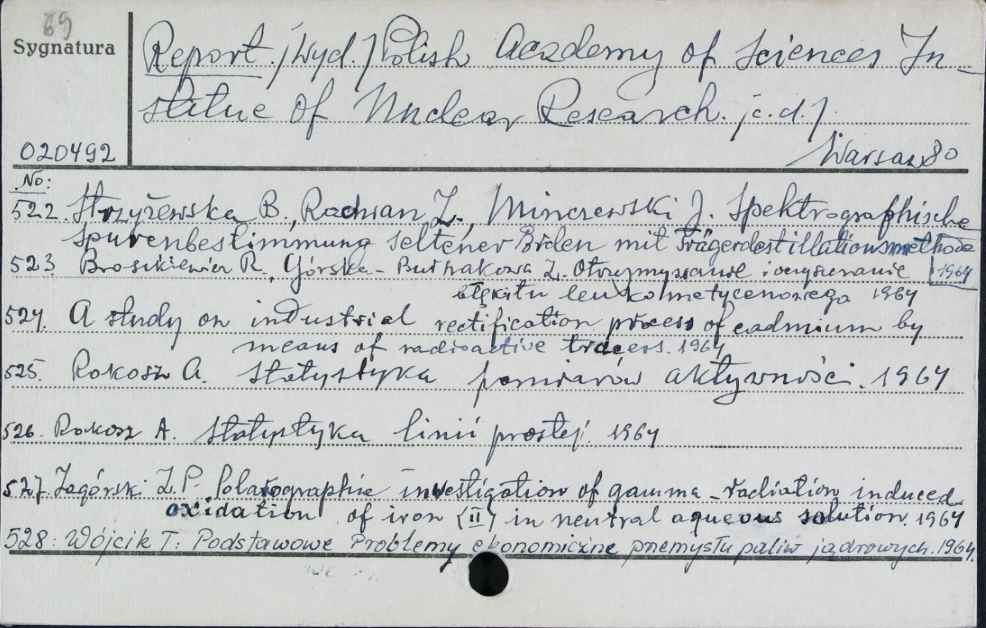 89
Sygnatura
020492
Report. /Wyd./ Polish Academy of Sciences In-
stitue of Nuclear Research. /c.d./.
Warsaw 80
No:
522. Strzyżewska B., Radwan Z., Minczewski J. Spektrographische
Spurenbestimmung seltener Erden mit Trägerdestillationsmethode
1964
523 Brosikiewicz R., Górska-Butrakowa Z. Otrzymywanie i oczyszczanie
błękitu leukometylenowego 1964
524. A study on industrial rectification process of cadmium by
means of radioactive tracers. 1964
525. Rokosz A. Statystyka pomiarów aktywności. 1964
526. Rokosz A. Statystyka linii prostej. 1964
527. Zagórski Z.P. Polarographic investigation of gamma-radiation induced
oxidation of iron (II) in neutral aqueous solution. 1964
528: Wójcik T: Podstawowe Problemy ekonomiczne przemysłu paliw jądrowych. 1964.